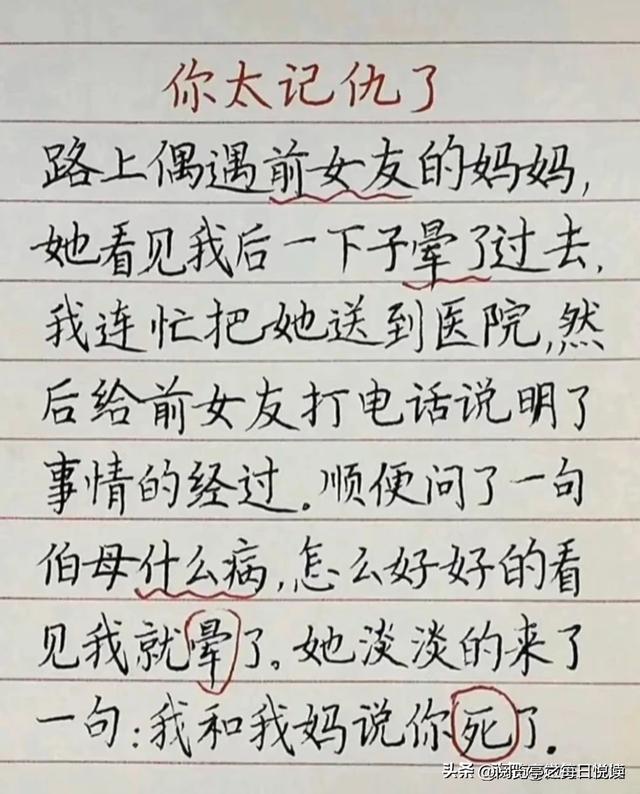 你太记仇了
路上偶遇前女友的妈妈,
她看见我后一下子晕了过去,
我连忙把她送到医院,然
后给前女友打电话说明了
事情的经过。顺便问了一句
伯母什么病,怎么好好的看
见我就晕了。她淡淡的来了
一句:我和我妈说你死了.
头条 @